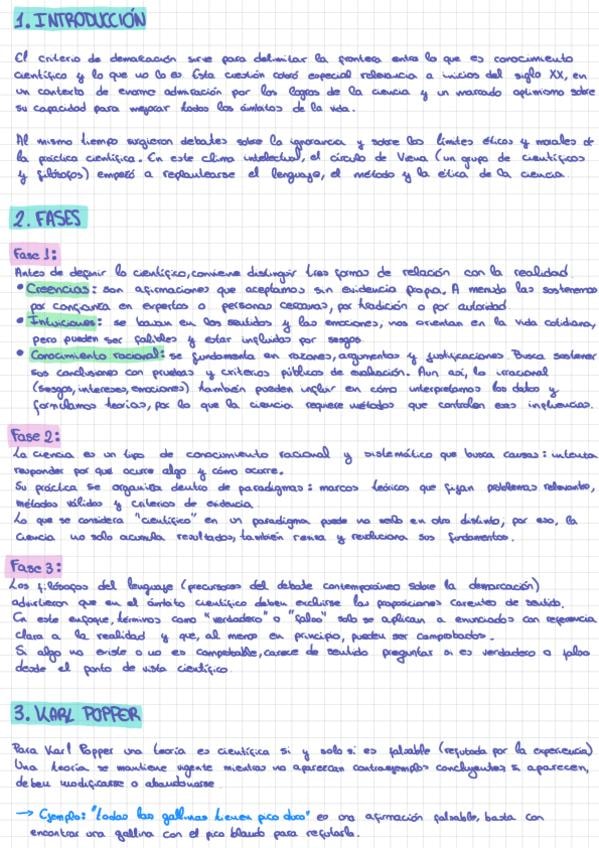 1. INTRODUCCIÓN
El criterio de demarcación sirve para delimitar la frontera entre lo que es conocimiento
científico y lo que no lo es. Esta cuestión cobró especial relevancia a inicios del siglo XX, en
un contexto de enorme admiración por los logros de la ciencia y un marcado optimismo sobre
su capacidad para mejorar todos los ámbitos de la vida.
Al mismo tiempo surgieron debates sobre la ignorancia y sobre los límites éticos y morales de
la práctica científica. En este clima intelectual, el círculo de Viena (un grupo de científicos
y filósofos) empezó a replantearse el lenguaje, el método y la ética de la ciencia.
2. FASES
Fase 1:
Antes de definir lo científico, conviene distinguir tres formas de relación con la realidad.
• Creencias: son afirmaciones que aceptamos sin evidencia propia. A menudo las sostenemos
por confianza en expertos o personas cercanas, por tradición o por autoridad.
• Intuiciones: se basan en los sentidos y las emociones, nos orientan en la vida cotidiana,
pero pueden ser falibles y estar influidas por sesgos.
• Conocimiento racional: se fundamenta en razones, argumentos y justificaciones. Busca sostener
sus conclusiones con pruebas y criterios públicos de evaluación. Aun así, lo irracional
(sesgos, intereses, emociones) también pueden influir en cómo interpretamos los datos y
formulamos teorías, por lo que la ciencia requiere métodos que controlen esas influencias.
Fase 2:
La ciencia es un tipo de conocimiento racional y sistemático que busca causas: intenta
responder por qué ocurre algo y cómo ocurre.
Su práctica se organiza dentro de paradigmas: marcos teóricos que fijan problemas relevantes,
métodos válidos y criterios de evidencia.
Lo que se considera "científico" en un paradigma puede no serlo en otro distinto, por eso, la
ciencia no solo acumula resultados, también revisa y revoluciona sus fundamentos.
Fase 3:
Los filósofos del lenguaje (precursores del debate contemporáneo sobre la demarcación)
advirtieron que en el ámbito científico deben excluirse las proposiciones carentes de sentido.
En este enfoque, términos como "verdadero" o "falso" solo se aplican a enunciados con referencia
clara a la realidad y que, al menos en principio, puedan ser comprobados.
Si algo no existe o no es comprobable, carece de sentido preguntar si es verdadero o falso
desde el punto de vista científico.
3. KARL POPPER
Para Karl Popper una teoría es científica si y solo si es falsable (refutada por la experiencia)
Una teoría se mantiene vigente mientras no aparezcan contraejemplos concluyentes si aparecen,
deben modificarse o abandonarse
→ Ejemplo: "todas las gallinas tienen pico duro" es una afirmación falsable, basta con
encontrar una gallina con el pico blando para refutarla.